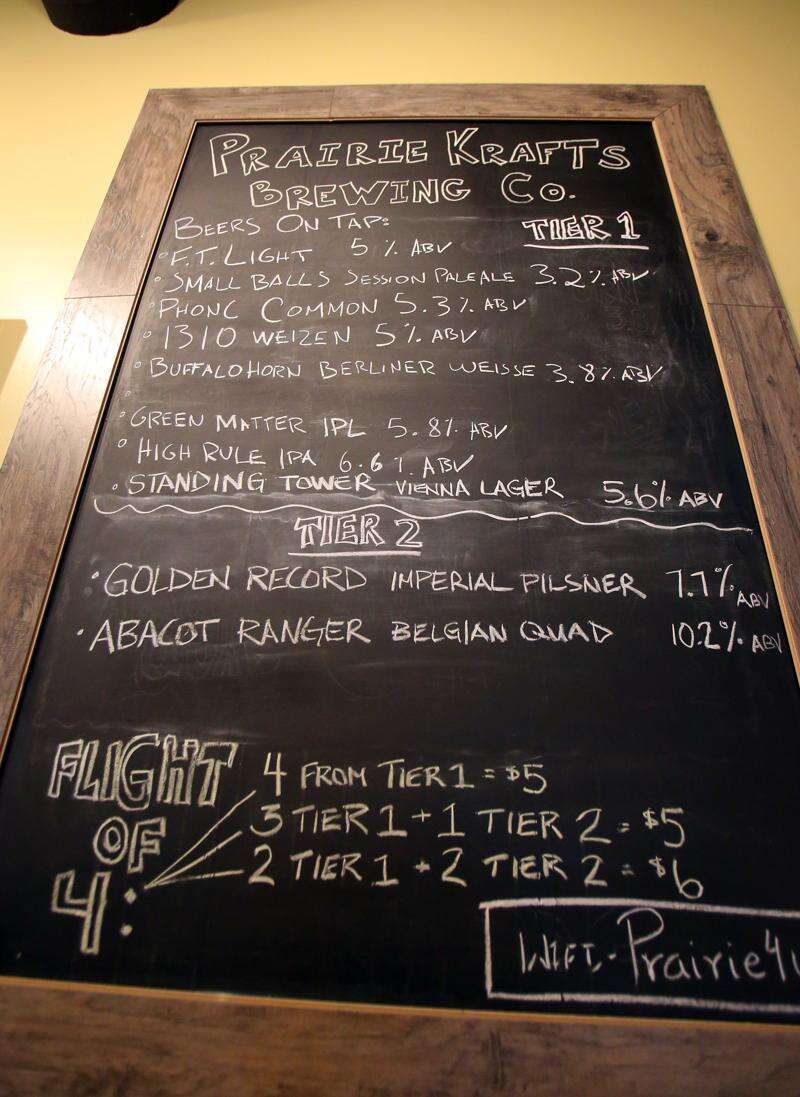 PRAIRIE KRAFTS
BREWING CO.
BEERS ON TAP:
TIER 1
F.T. LIGHT 5% ABV
SMALL BALLS SESSION PALE ALE 3.2% ABV
PHONC COMMON 5.3% ABV
1310 WEIZEN 5% ABV
BUFFALO HORN BERLINER WEISSE 3.8% ABV
GREEN MATTER IPL 5.8% ABV
HIGH RULE IPA 6.6% ABV
STANDING TOWER VIENNA LAGER 5.6% ABV
TIER 2
GOLDEN RECORD IMPERIAL PILSNER 7.7% ABV
ABACOT RANGER BELGIAN QUAD 10.2% ABV
FLIGHT
OF
4:
4 FROM TIER 1 = $5
3 TIER 1 + 1 TIER 2 = $5
2 TIER 1 + 2 TIER 2 = $6
WIFI - Prairie4u